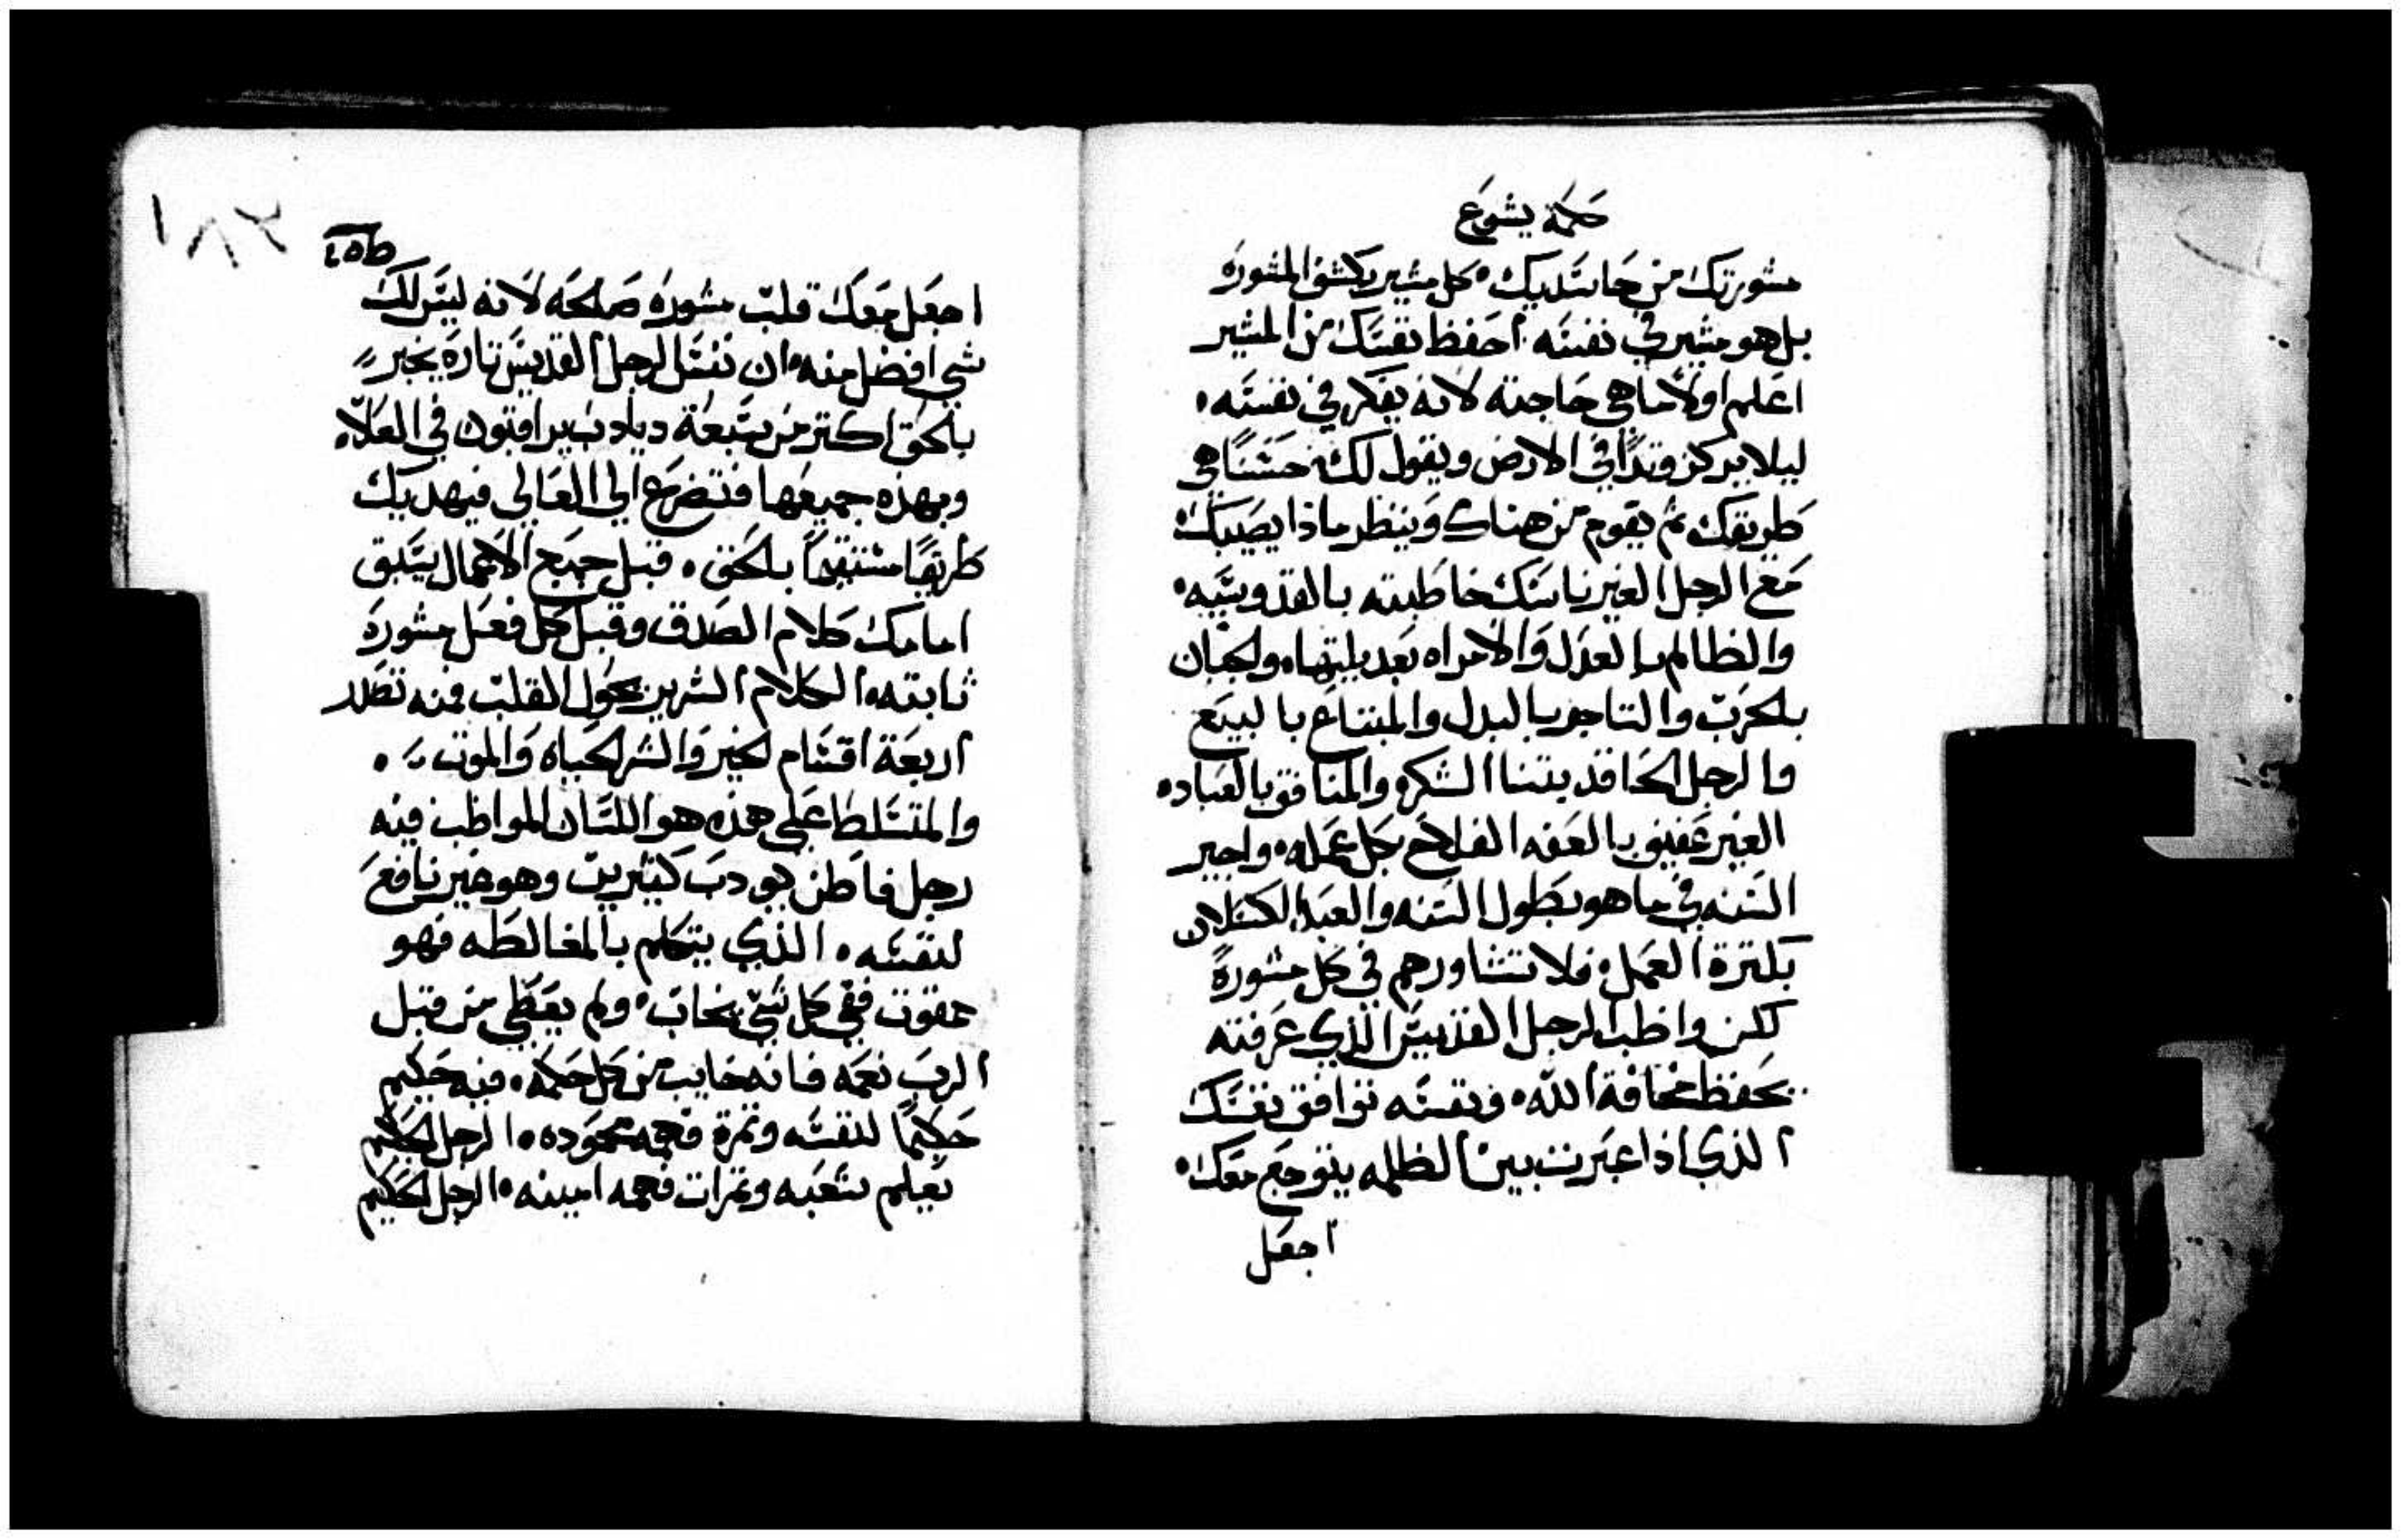 حكمة يشوع
مشورتك من حاسديك۰ كل مشير يكشف المشوره
بل هو مشير في نفسه۰ احفظ نفسك من المشير
اعلم اولا ما هي حاجته لانه يفكر في نفسه۰
ليلا يركز وتدًا في الارض ويقول لك۰ حسنًا هي
طريقك ثم يقوم من هناك وينظر ماذا يصيبك
مع الرجل الغير ناسك خاطبته بالقدوسيه۰
والظالم بالعدل والامراه بعد يليتها۰ ولجبان
بلحرب والتاجر بالبدل والمبتاع بالبيع
والرجل الحاقد بتنا الشكر۰ والمنافق بالعباده
الغير عفيف بالعفه الفلاح بكل عمله۰ واجير
السنه في ما هو بطول السنه والعبد الكسلان
بكترة العمل۰ فلا تشاورهم في كل مشورةً
لكن واظب الرجل القديس الذي عرفته
بحفظ مخافة الله۰ ونفسه توافق نفسك
الذي اذا عبرت بين الظلمه يتوجع معك۰
اجعل
٢٨١
اجعل معك قلب مشوره صلحه لانه ليس لك
شي افضل منه۰ ان نفس الرجل القديس تاره يخبر
بلحق اكتر من سبعة ديادب يراقبون في العلا۰
وبهذه جميعها فتضرع الي العالي فيهديك
طريقًا مستقيمًا بلحق۰ قبل جميع الاعمال يسبق
امامك كلام الصدق وقبل كل فعل مشورة
ثابته۰ الكلام الشرير يحول القلب فمنه تصدر
اربعة اقسام لخير والشر لحياه والموت ۰
والمتسلط علي هذه هو اللسان المواظب فيه
رجل فاطن يودب كثيرين وهو خير نافع
لنفسه۰ الذي يتكلم بالمغالطه فهو
ممقوت ففي كل شي يخاب۰ ولم يعطي من قبل
الرب نعمه فانه خايب من كل حكمه۰ فيه حكيم
حكيمًا لنفسه وثمرة فهمه محموده۰ الرجل الحكيم
يعلم شعبه وثمرات فهمه امينه۰ الرجل الحكيم